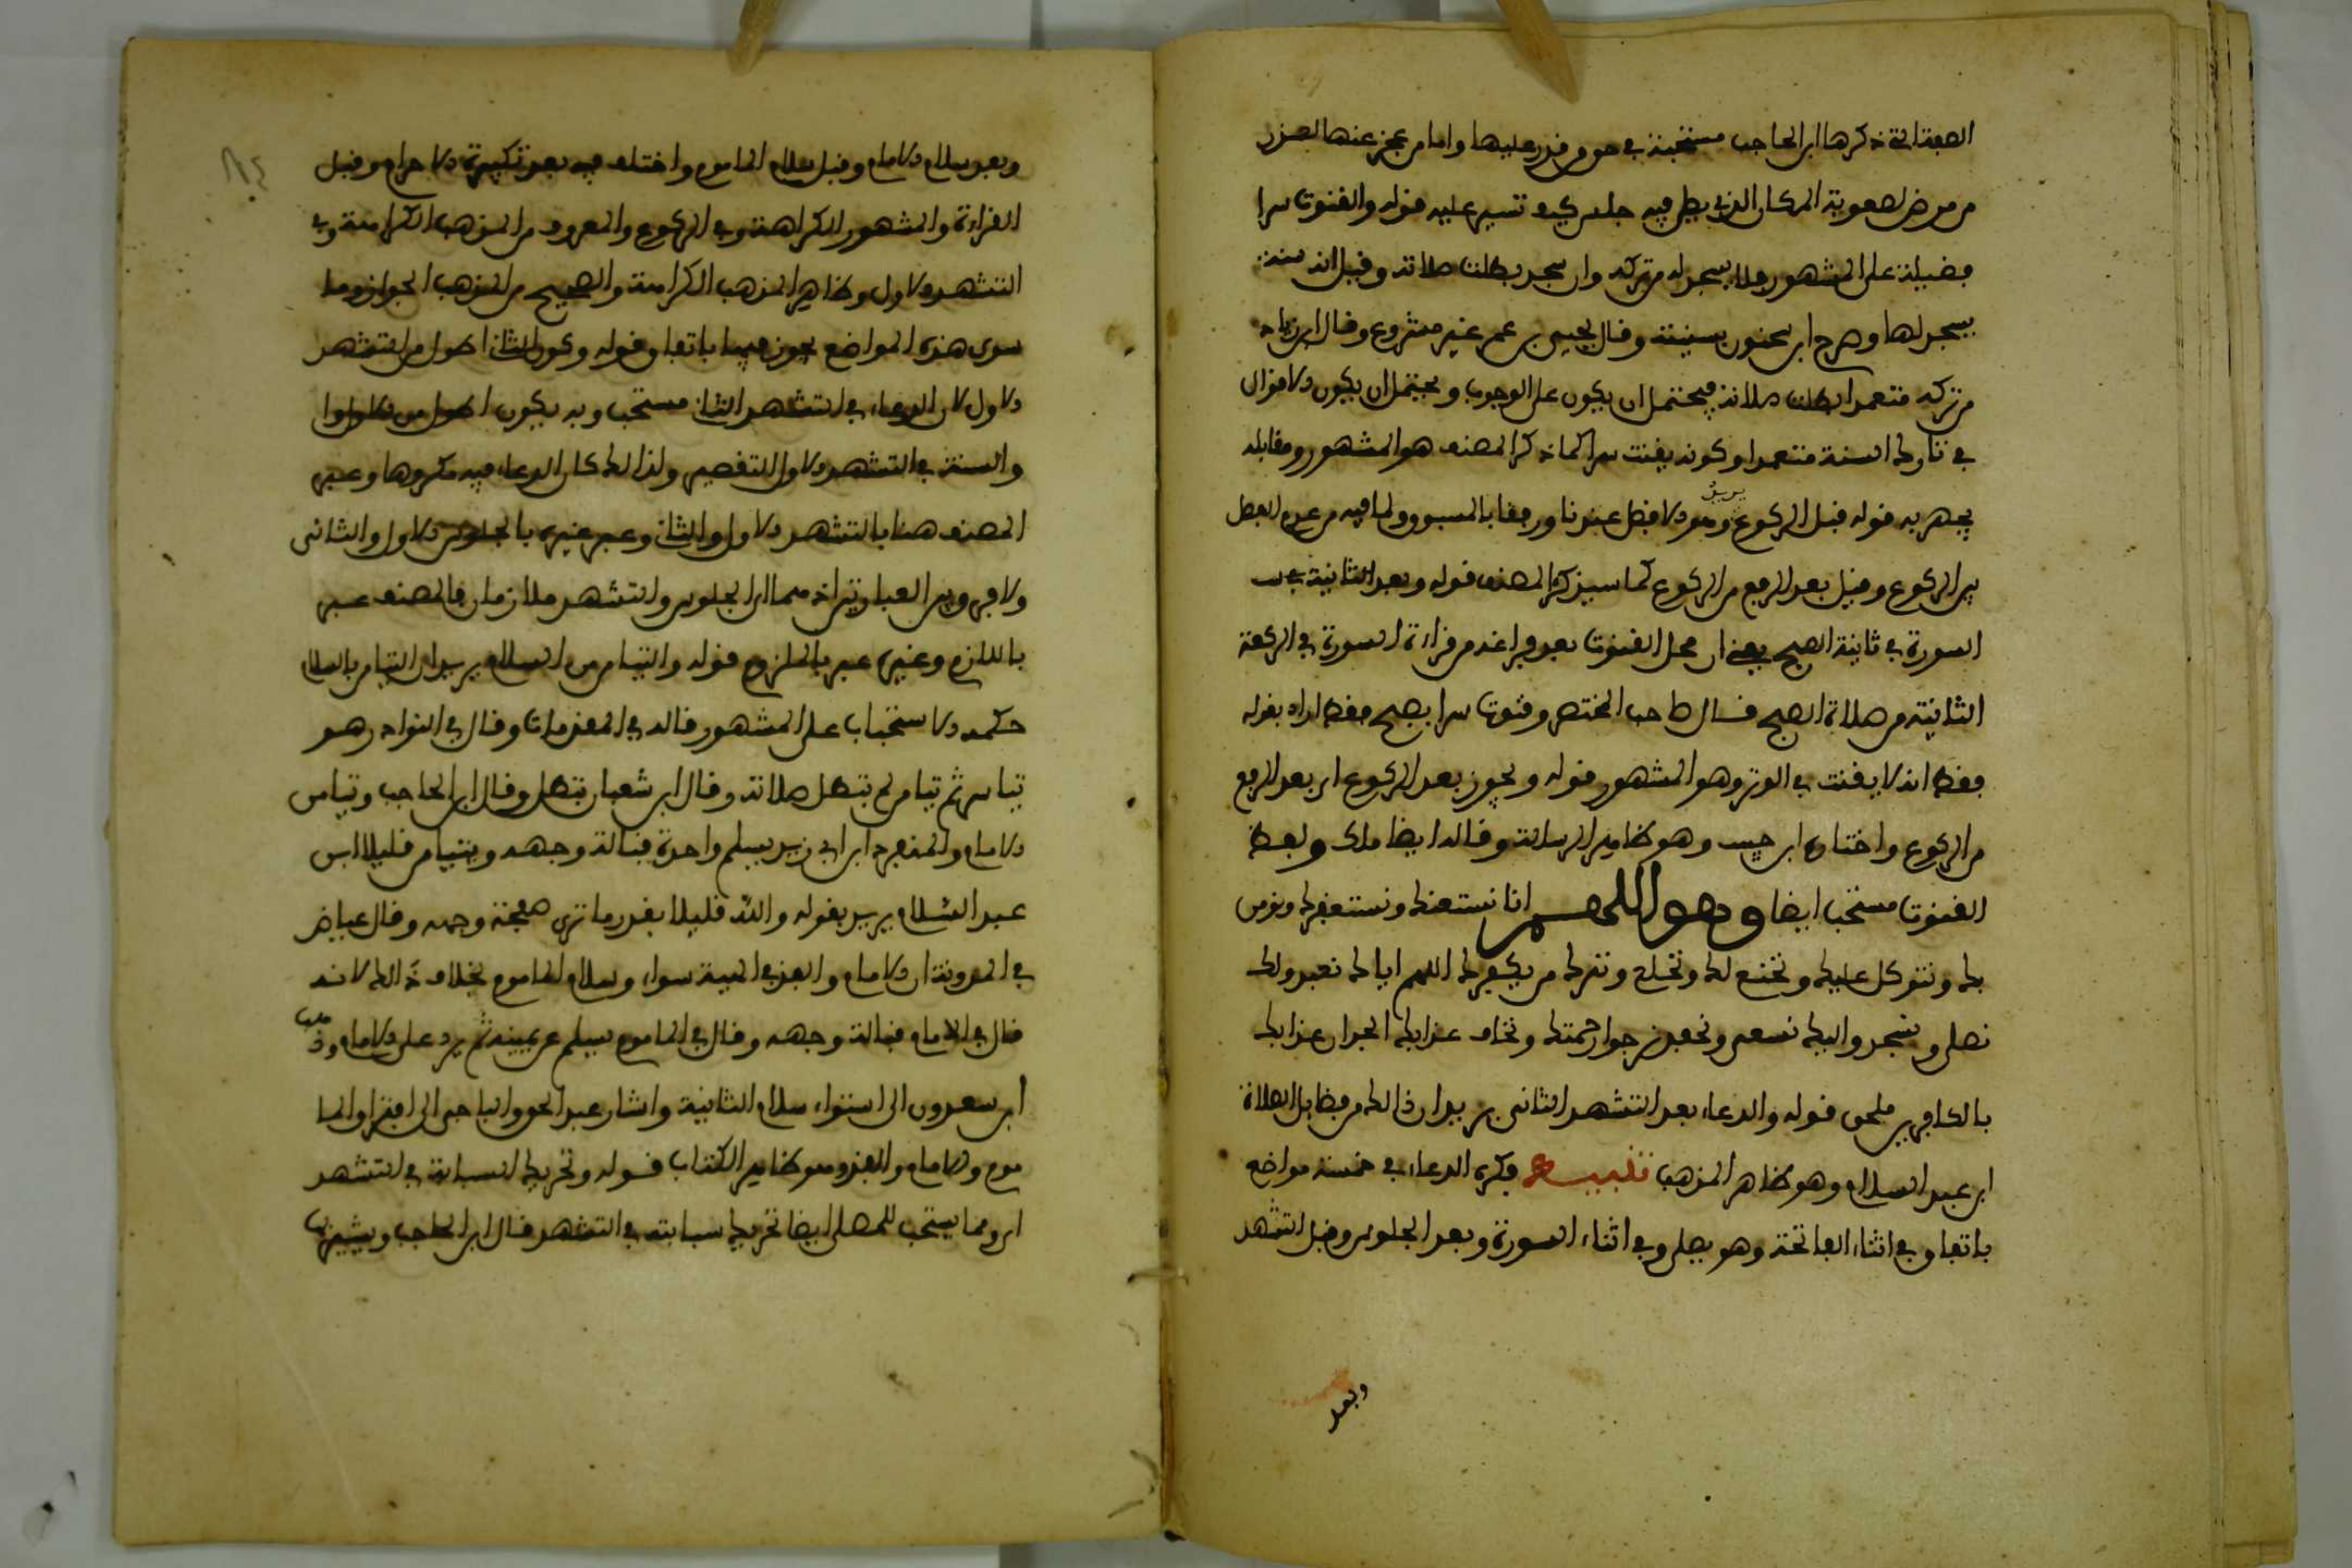 الصفة التي ذكرها ابن الحاجب مستحبة في حق من قدر عليها واما من عجز عنها لعذر
من مرض لصعوبة المكان الذي يصلي فيه جلس كيف تيسر عليه قوله والقنوت سرا
فضيلة على المشهور فلا يسجد له من تركه وان سجد بطلت صلاته وقيل انه سنة
يسجد لها وصرح ابن سحنون بسنيته وقال يحيى بن عمر غير مشروع وقال ابن زياد
من تركه متعمدا بطلت صلاته فيحتمل ان يكون على الوجوب ويحتمل ان يكون الاقوال
في تارك السنة متعمدا وكونه يقنت سرا كما ذكر المصنف هو المشهور ومقابله
يجهر به قوله قبل الركوع يريد وهو الافضل عندنا ورفقا بالمسبوق ولما فيه من عدم الفصل
بين الركوع وقيل بعد الرفع من الركوع كما سيذكر المصنف قوله وبعد الثانية
السورة في ثانية الصبح يعني ان محل القنوت بعد فراغه من قراءة السورة في الركعة
الثانية من صلاة الصبح قال صاحب المختصر وقنوت سرا بصبح فقط اراد بقوله
فقط انه لا يقنت في الوتر وهو المشهور قوله ويجوز بعد الركوع اي بعد الرفع
من الركوع واختاره ابن حبيب وهو ظاهر الرسالة وقاله ايضا ملك ولفظ
القنوت مستحب ايضا وهو اللهم انا نستعينك ونستغفرك ونومن
بك ونتوكل عليك ونخنع لك ونخلع ونترك من يكفرك اللهم اياك نعبد ولك
نصلي ونسجد واليك نسعى ونحفد نرجوا رحمتك ونخاف عذابك الجد ان عذابك
بالكافرين ملحق قوله والدعاء بعد التشهد الثاني يريد ان ذالك من فضايل الصلاة
ابن عبد السلام وهو ظاهر المذهب تنبيه فيكره الدعاء في خمسة مواضع
باتفاق في اثناء الفاتحة وهو يصلي وفي اثناء السورة وبعد الجلوس وقبل التشهد
وبعد
وبعد سلام الامام وقبل سلام الماموم واختلف فيه بعد تكبيرة الاحرام وقبل
القراءة والمشهور الكراهة وفي الركوع والمعروف من المذهب الكراهة وفي
التشهد الاول وظاهر المذهب الكراهة والصحيح من المذهب الجواز وما
سوى هذه المواضع يجوز فيها باتفاق قوله وكون الثاني اطول من التشهد
الاول لان الدعاء في التشهد الثاني مستحب وبه يكون اطول من الاول
والسنة في التشهد الاول التقصير ولذالك كان الدعاء فيه مكروها وعبر
المصنف هنا بالتشهد الاول والثاني وعبر غيره بالجلوس الاول والثاني
ولا فرق بين العبارتين اذ هما اي الجلوس والتشهد متلازمان فالمصنف عبر
باللازم وغيره عبر بالملزوم قوله والتيامن بالسلام يريد ان التيامن بالسلام
حكمه الاستحباب على المشهور قاله في المقدمات وقال في النوادر هو
تياسر ثم تيامن لم تبطل صلاته وقال ابن شعبان تبطل وقال ابن الحاجب وتيامن
الامام والمنفرد ابن ابي زيد يسلم واحدة قبالة وجهه ويتيامن قليلا ابن
عبد السلام يريد بقوله والله قليلا بقدر ما ترى صفحة وجهه وقال عياض
في المدونة ان الامام والفذ في الهيئة سواء وسلام الماموم بخلاف ذالك لانه
قال في الامام قبالة وجهه وقال في الماموم يسلم عن يمينه ثم يرد على الامام وذهب
ابن سعدون الى استواء سلام الثانية واشار عبد الحق والباجي الى افتراق الما
موم والامام والفذ وهو ظاهر الكتاب قوله وتحريك السبابة في التشهد
اي ومما يستحب للمصلي ايضا تحريك سبابته في التشهد قال ابن الحاجب ويشير بها